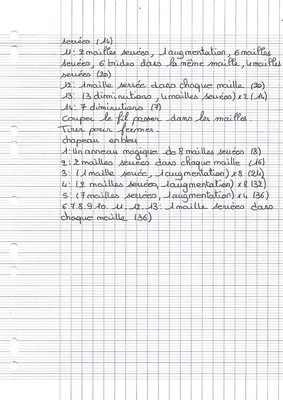 serrées (14)
11: 2 mailles serrées, 1 augmentation, 6 mailles
serrées, 6 brides dans la même maille, 4 mailles
serrées (20)
12: 1 maille serrée dans chaque maille (20)
13: (3 diminutions, 4 mailles serrées) x 2 (14)
14: 7 diminutions (7)
Couper le fil passer dans les mailles.
Tirer pour fermer.
chapeau en bleu
1: Un anneau magique de 8 mailles serrées (8)
2: 2 mailles serrées dans chaque maille (16)
3: (1 maille serrée, 1 augmentation) x 8 (24)
4: (2 mailles serrées, 1 augmentation) x 8 (32)
5: (7 mailles serrées, 1 augmentation) x 4 (36)
6. 7. 8. 9. 10. 11. 12. 13: 1 maille serrées dans
chaque maille (36)